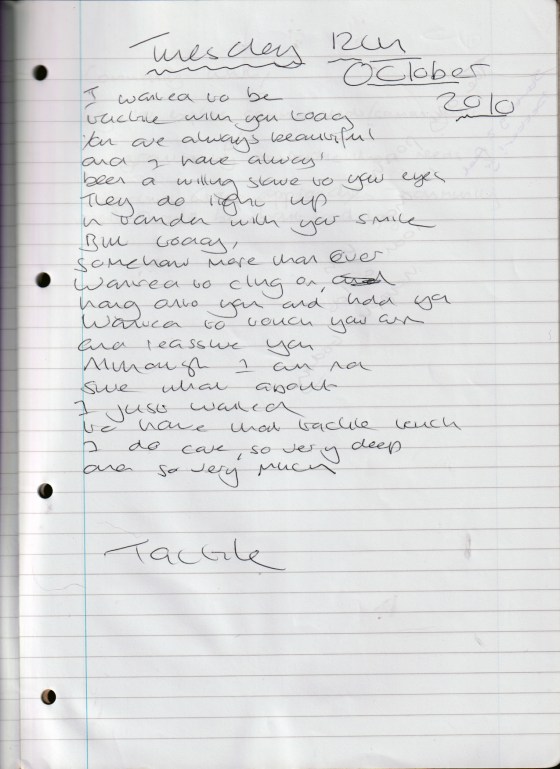 Tuesday 12th
October
2010
I wanted to be
tactile with you today
You are always beautiful
and I have always
been a willing slave to your eyes
They do light up
in tandem with your smile
But today,
somehow more than ever
Wanted to cling on,
hang onto you and hold you
Wanted to touch your arm
and reassure you
Although I am not
sure what about
I just wanted
to have that tactile touch
I do care, so very deep
and so very much
Tactile